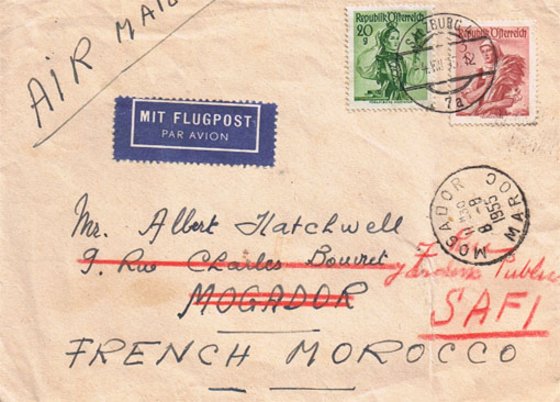 AIR MAIL
Republik Österreich
20
g
Republik Österreich
SALZBURG
7a
MIT FLUGPOST
PAR AVION
MOGADOR MAROC
1955
Mr. Albert Hatchwell
9. Rue Charles Bouvret
MOGADOR
Public
SAFI
FRENCH MOROCCO